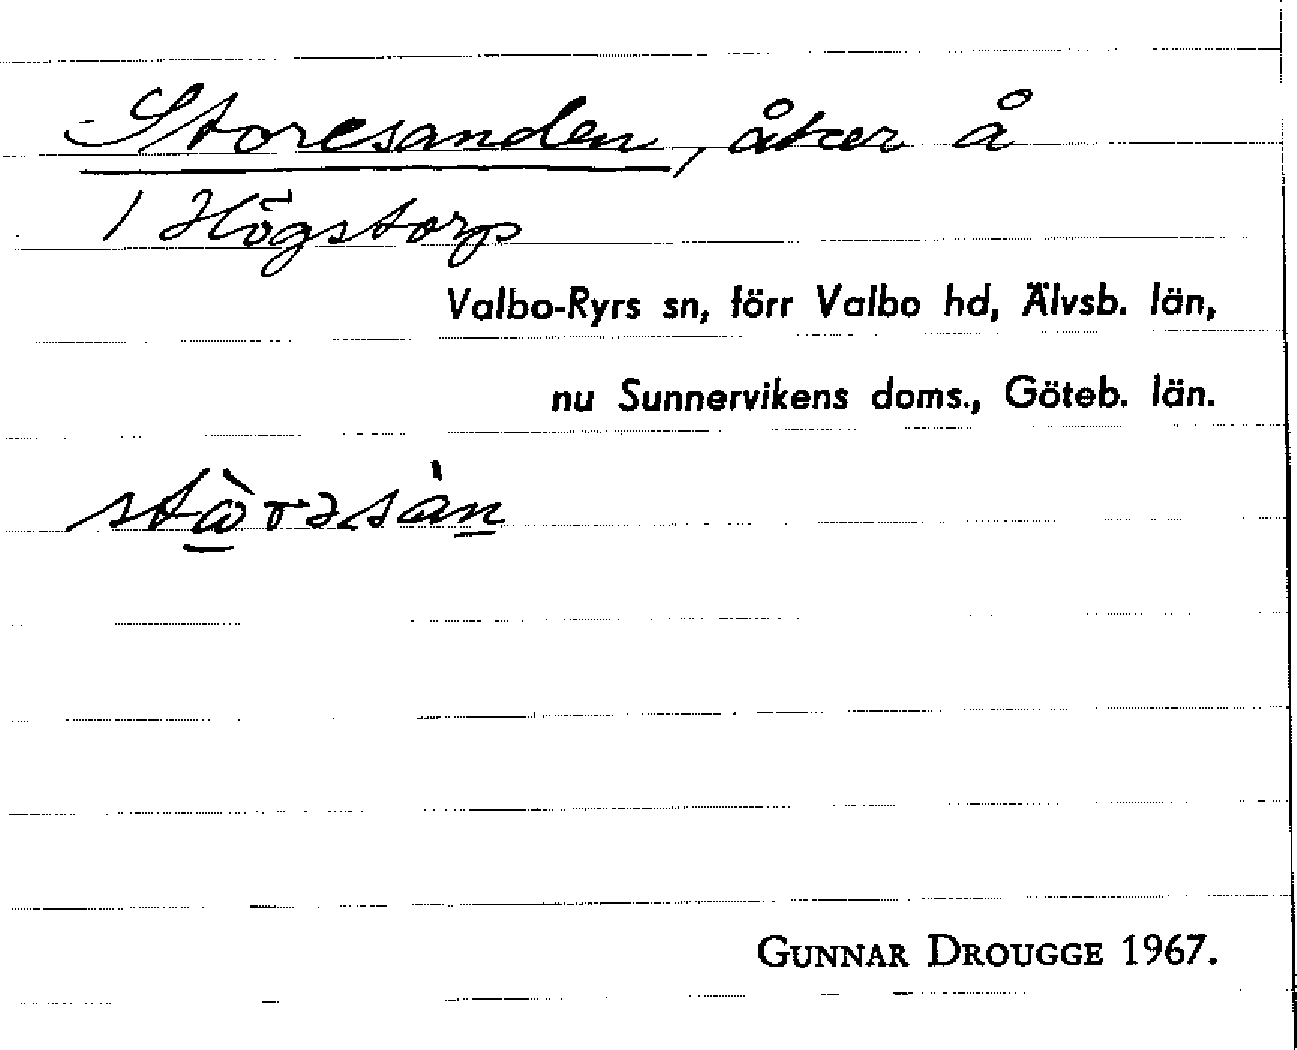 Storesanden, åker å
1 Högstorp
Valbo-Ryrs sn, förr Valbo hd, Älvsb. län,
nu Sunnervikens doms., Göteb. län.
GUNNAR DROUGGE 1967.